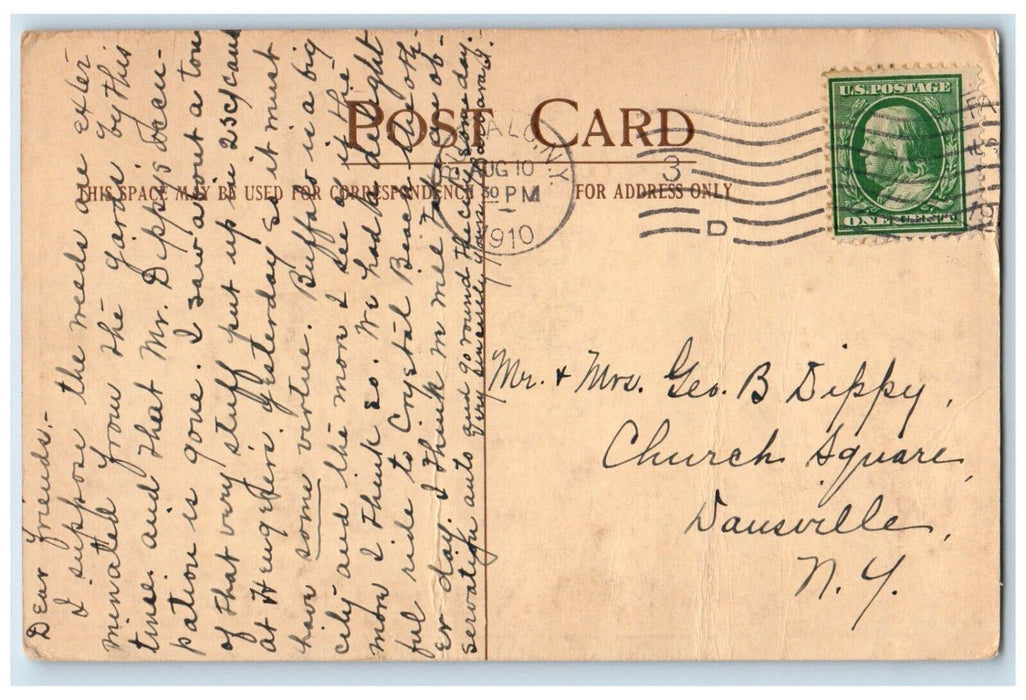 POST CARD
THIS SPACE MAY BE USED FOR CORRESPONDENCE
FOR ADDRESS ONLY
BUFFALO, N.Y.
AUG 10
30 PM
1910
3
D
U.S. POSTAGE
ONE CENT
Dear friends.-
I suppose the weeds are exter-
minated from the garden by this
time and that Mr. Dippy's occu-
pation is gone. I saw about a ton
of that very stuff put up in 25c/cans
at Hengerer's yesterday so it must
have some virtue. Buffalo is a big
city and the more I see of it the
more I think so. We had a delight-
ful ride to Crystal Beach the oth-
er day. I think we will take an ob-
servation auto and go round the city some day.
Yours sincerely
Mr. + Mrs. Geo. B Dippy,
Church Square,
Dansville,
N.Y.